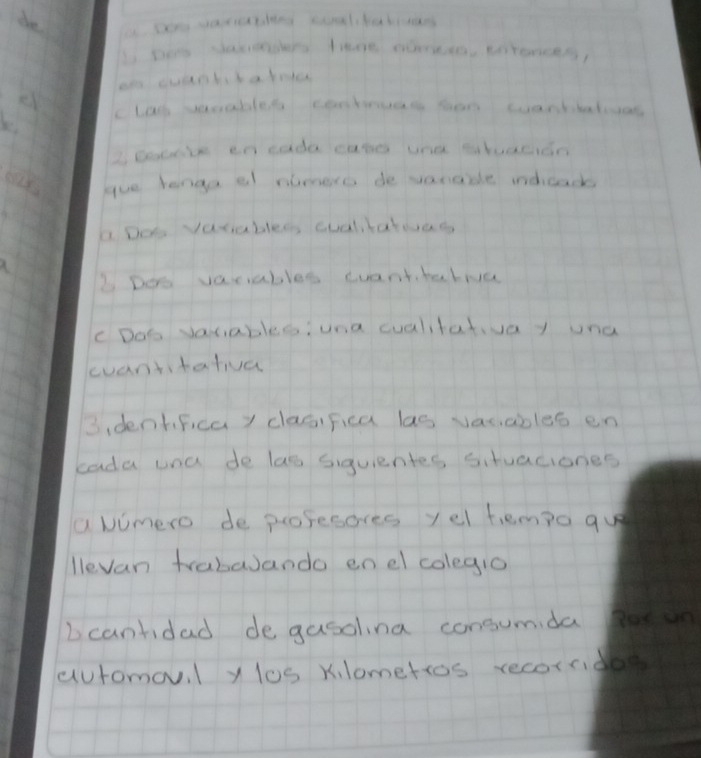 variables cualitativas
tiene número, entonces,
cuantitativa
c Las variables continuas son cuantitativas
2. en cada caso una situación
que tenga el número de variable indicado
a Dos variables cualitativas
b Dos variables cuantitativa
c Dos variables: una cualitativa y una
cuantitativa
3. identifica y clasifica las variables en
cada una de las siguientes situaciones
a Número de profesores y el tiempo que
llevan trabajando en el colegio
b cantidad de gasolina consumida por un
automovil y los Kilometros recorridos